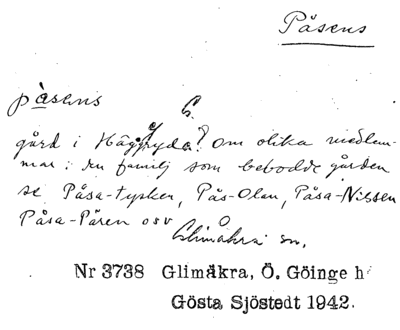 Påsens
påsens G.
gård i Häggryda? Om olika medlem-
mar i den familj som bebodde gården
se Påsa-tysken, Pås-Olan, Påsa-Nilssen
Påsa-Påren osv
Glimåkra sn.
Nr 3738 Glimåkra, Ö. Göinge h
Gösta Sjöstedt 1942.